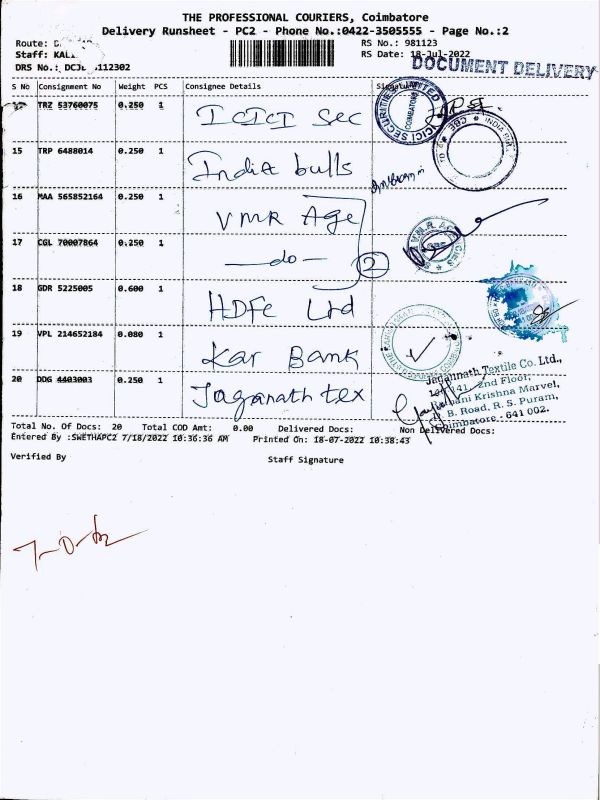 THE PROFESSIONAL COURIERS, Coimbatore
Delivery Runsheet - PC2 - Phone No.:0422-3505555 - Page No.:2
Route: RS No.: 981123
Staff: RS Date: 18-Jul-2022
DRS No.: 112302
DOCUMENT DELIVERY
S No Consignment No Weight PCS Consignee Details Signature
TRZ 53760075 0.250 1 ICICI Sec
15 TRP 6488014 0.250 1 India bulls
16 MAA 565852164 0.250 1 VMR Age
17 CGL 70007864 0.250 1 —do— 2
18 GDR 5225005 0.600 1 HDFC Ltd
19 VPL 214652184 0.080 1 Kar Bank
20 DDG 4403003 0.250 1 Jaganath tex
ICICI SECURITIES LIMITED
COIMBATORE
CBE
Jagannath Textile Co. Ltd.,
141, 2nd Floor,
Krishna Marvel,
B. Road, R. S. Puram,
Coimbatore - 641 002.
Total No. Of Docs: 20 Total COD Amt: 0.00 Delivered Docs: Non Delivered Docs:
Entered By :SWETHAPC2 7/18/2022 10:36:36 AM Printed On: 18-07-2022 10:38:43
Verified By Staff Signature